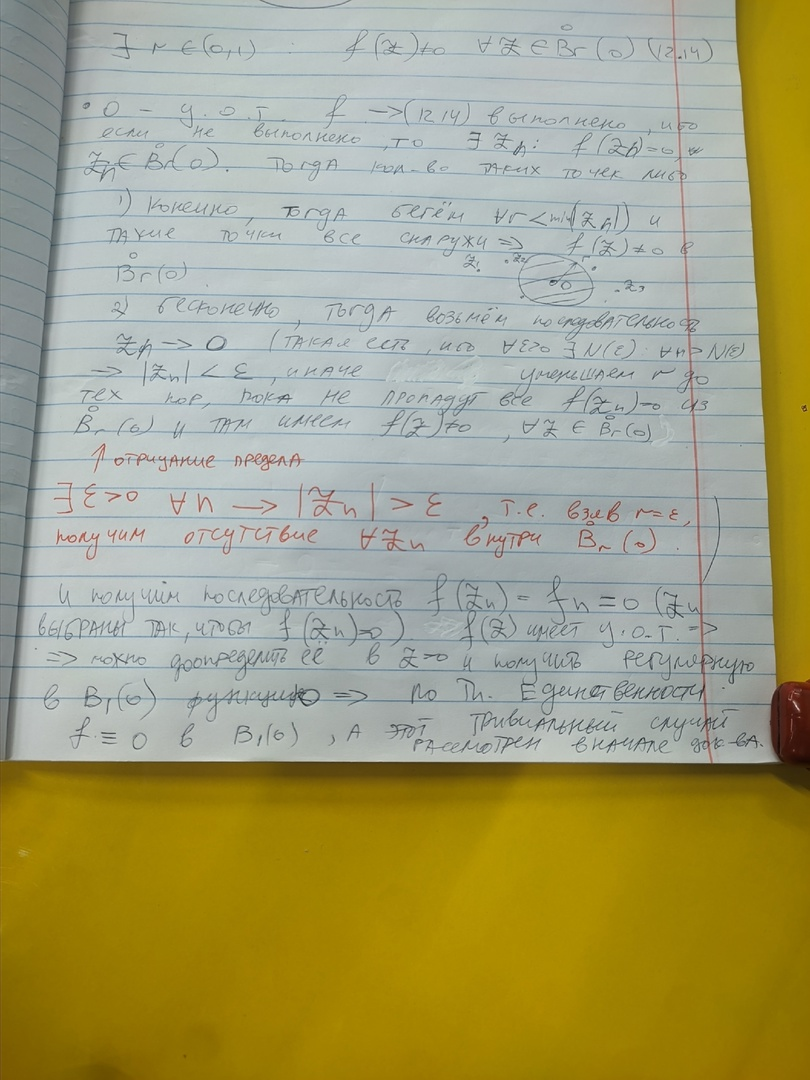 ∃ r ∈ (0,1) : f(z)≠0 ∀ z ∈ B̊r(0) (12.14)
• 0 – у.о.т. f → (12.14) выполнено, ибо
если не выполнено, то ∃ Zn: f(Zn)=0,
Zn ∈ B̊r(0). Тогда кол-во таких точек либо
1) Конечно, тогда берём ∀r < min(|Zn|) и
такие точки все снаружи => f(z) ≠ 0 в
B̊r(0).
z1 z2 r 0 z3
2) бесконечно, тогда возьмём последовательность
Zn → 0 (такая есть, ибо ∀ε>0 ∃ N(ε): ∀n > N(ε)
→ |Zn| < ε, иначе уменьшаем r до
тех пор, пока не пропадут все f(Zn)=0 из
B̊r(0) и там имеем f(z)≠0, ∀ z ∈ B̊r(0)
↑ отрицание предела
∃ ε>0 ∀ n → |Zn| > ε, т.е. взяв r=ε,
получим отсутствие ∀Zn внутри B̊r(0).)
и получим последовательность f(Zn) = fn = 0 (Zn
выбраны так, чтобы f(Zn)=0). f(z) имеет у.о.т. =>
=> можно доопределить её в z=0 и получить регулярную
в B1(0) функцию => по Th. Единственности
f ≡ 0 в B1(0), а этот тривиальный случай
рассмотрен в начале док-ва.